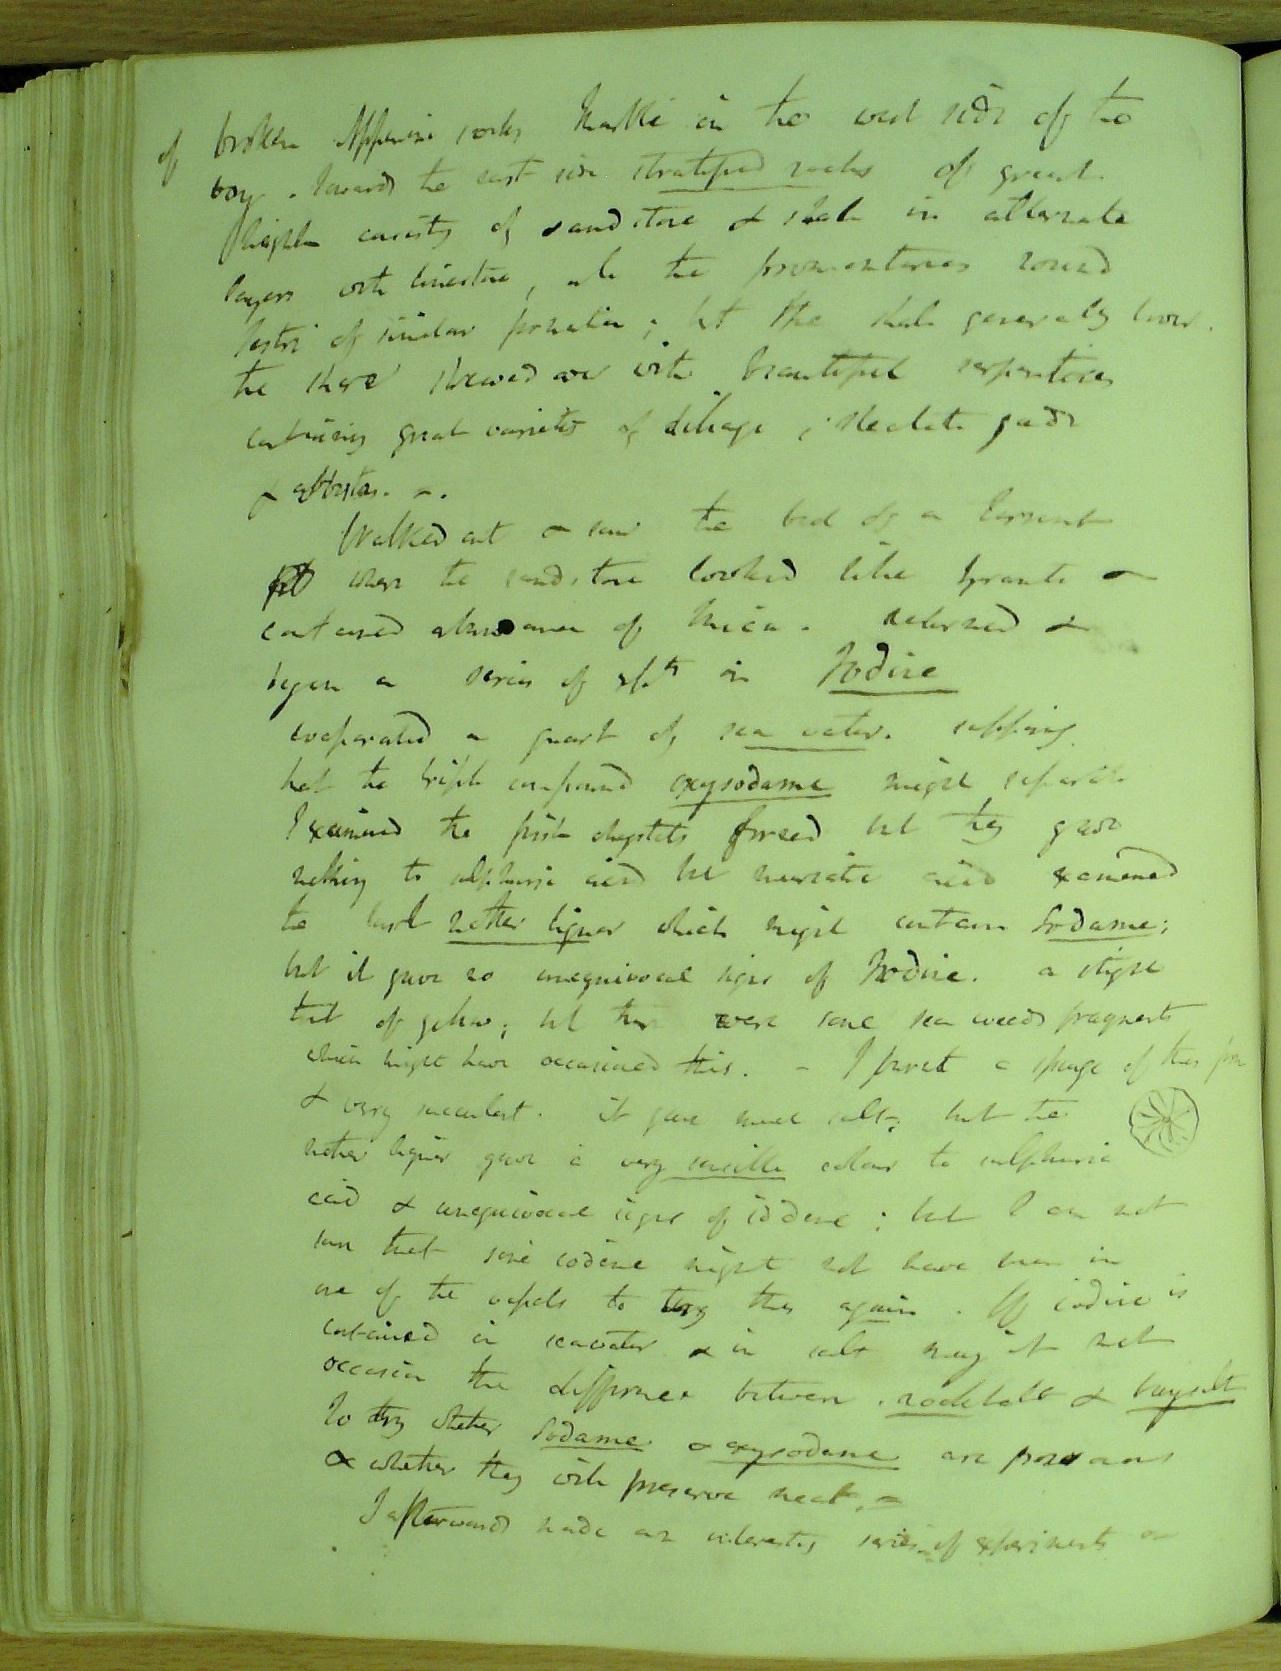 of broken Appenine rocks Marble on the west side of the
bay. Towards the east side stratified rocks of great
height consisting of sandstone & shale in alternate
layers with limestone, all the promontories round
Sestri of similar formation; but the shale generally lower.
the shore strewed over with beautiful serpentines
containing great varieties of diliage; steatite jade
& asbestos. -.
Walked out & saw the bed of a torrent
where the sandstone looked like granite &
contained abundance of mica. returned &
began a series of expts on Iodine
evaporated a quart of sea water. supposing
that the triple compound oxysodame might separate
I examined the first chrystals formed but they gave
nothing to sulphuric acid but muriatic acid examined
the last mother liquor which might contain Sodame;
but it gave no unequivocal signs of Iodine. a slight
tint of yellow; but there were some sea weeds fragments
which might have occasioned this. - I found a sponge of this form
& very succulent. it gave much salt, but the
mother liquor gave a very sensible colour to sulphuric
acid & unequivocal signs of iodine; but I am not
sure that some iodine might not have been in
one of the vessels to try this again. If iodine is
contained in seawater & in salt may it not
occasion the difference between rocksalt & baysalt
To try whether Sodame & oxysodame are poisonous
& whether they will preserve meat. -
I afterwards made an interesting series of experiments on